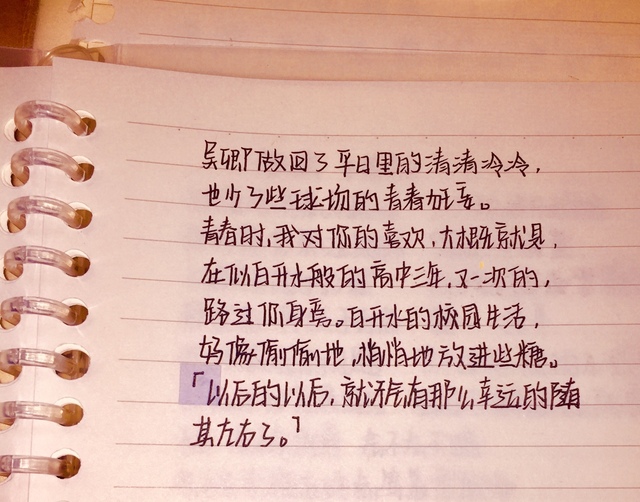 吴卿做回了平日里的清清冷冷，
也少了些球场的青春狂妄。
青春时，我对你的喜欢，大概就是，
在似白开水般的高中三年，又一次的，
路过你身旁。白开水的校园生活，
好像偷偷地，悄悄地放进些糖。
「以后的以后，就不会有那么幸运的随
其左右了。」